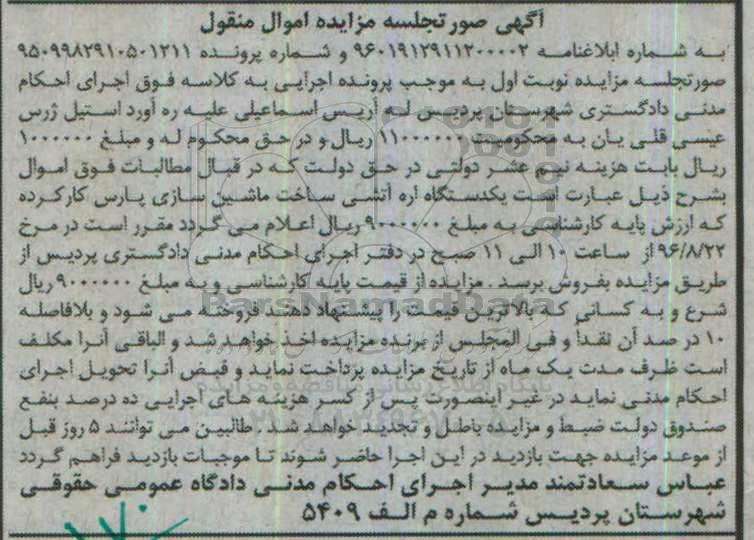 آگهی صورتجلسه مزایده اموال منقول
به شماره ابلاغنامه ۹۶۰۱۹۱۲۹۱۱۲۰۰۰۰۲ و شماره پرونده ۹۵۰۹۹۸۲۹۱۰۵۰۱۲۱۱
صورتجلسه مزایده نوبت اول به موجب پرونده اجرایی به کلاسه فوق اجرای احکام
مدنی دادگستری شهرستان پردیس له آریس اسماعیلی علیه ره آورد استیل ژرس
عیسی قلی یان به محکومیت ۱۱۰۰۰۰۰۰۰ ریال و در حق محکوم له و مبلغ ۱۰۰۰۰۰۰
ریال بابت هزینه نیم عشر دولتی در حق دولت که در قبال مطالبات فوق اموال
بشرح ذیل عبارت است یکدستگاه اره آتشی ساخت ماشین سازی پارس کارکرده
که ارزش پایه کارشناسی به مبلغ ۹۰۰۰۰۰۰۰ ریال اعلام می گردد مقرر است در مرخ
۹۶/۸/۲۲ از ساعت ۱۰ الی ۱۱ صبح در دفتر اجرای احکام مدنی دادگستری پردیس از
طریق مزایده بفروش برسد . مزایده از قیمت پایه کارشناسی و به مبلغ ۹۰۰۰۰۰۰۰ ریال
شرع و به کسانی که بالاترین قیمت را پیشنهاد دهند فروخته می شود و بلافاصله
۱۰ در صد آن نقداً و فی المجلس از برنده مزایده اخذ خواهد شد و الباقی آنرا مکلف
است ظرف مدت یک ماه از تاریخ مزایده پرداخت نماید و قبض آنرا تحویل اجرای
احکام مدنی نماید در غیر اینصورت پس از کسر هزینه های اجرایی ده درصد بنفع
صندوق دولت ضبط و مزایده باطل و تجدید خواهد شد . طالبین می توانند ۵ روز قبل
از موعد مزایده جهت بازدید در این اجرا حاضر شوند تا موجبات بازدید فراهم گردد
عباس سعادتمند مدیر اجرای احکام مدنی دادگاه عمومی حقوقی
شهرستان پردیس شماره م الف ۵۴۰۹
ParsNamadData